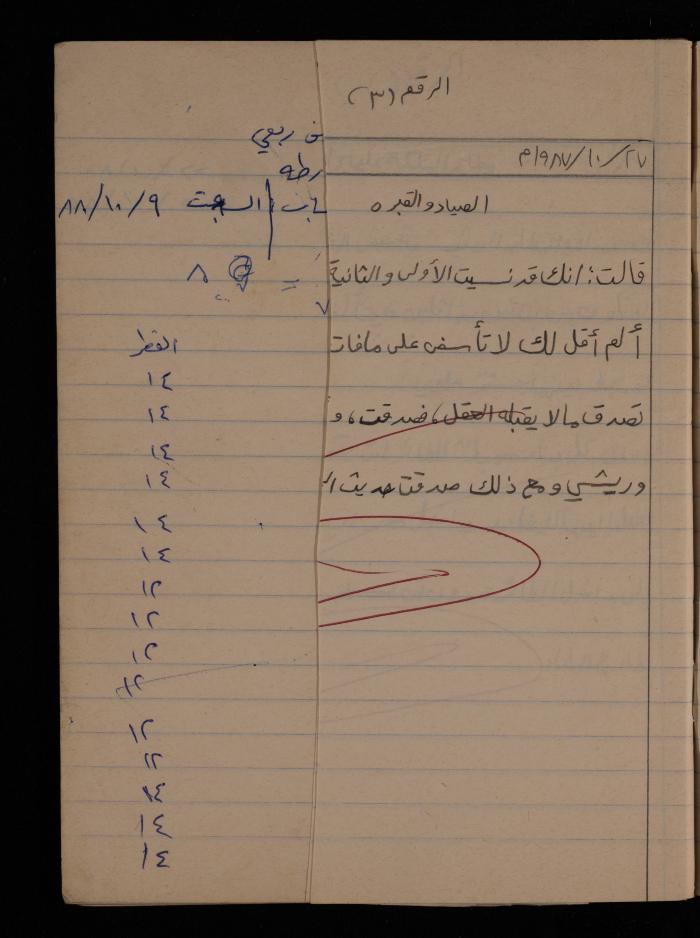 الرقم (٣)
٢٧/١٠/١٩٨٧م
الصياد والقبره
قالت: انك قد نسيت الأولى والثانية
ألم أقل لك لا تأسفن على ما فات
تصدق ما لا يقبله العقل، فصدقت، و
وريشي ومع ذلك صدقت حديث
ربعي
السبت ٨٨/١٠/٩
= ٨
٧
القطر
١٤
١٤
١٤
١٤
١٤
١٤
١٢
١٢
١٢
١٢
١٢
١٢
١٤
١٤
١٤